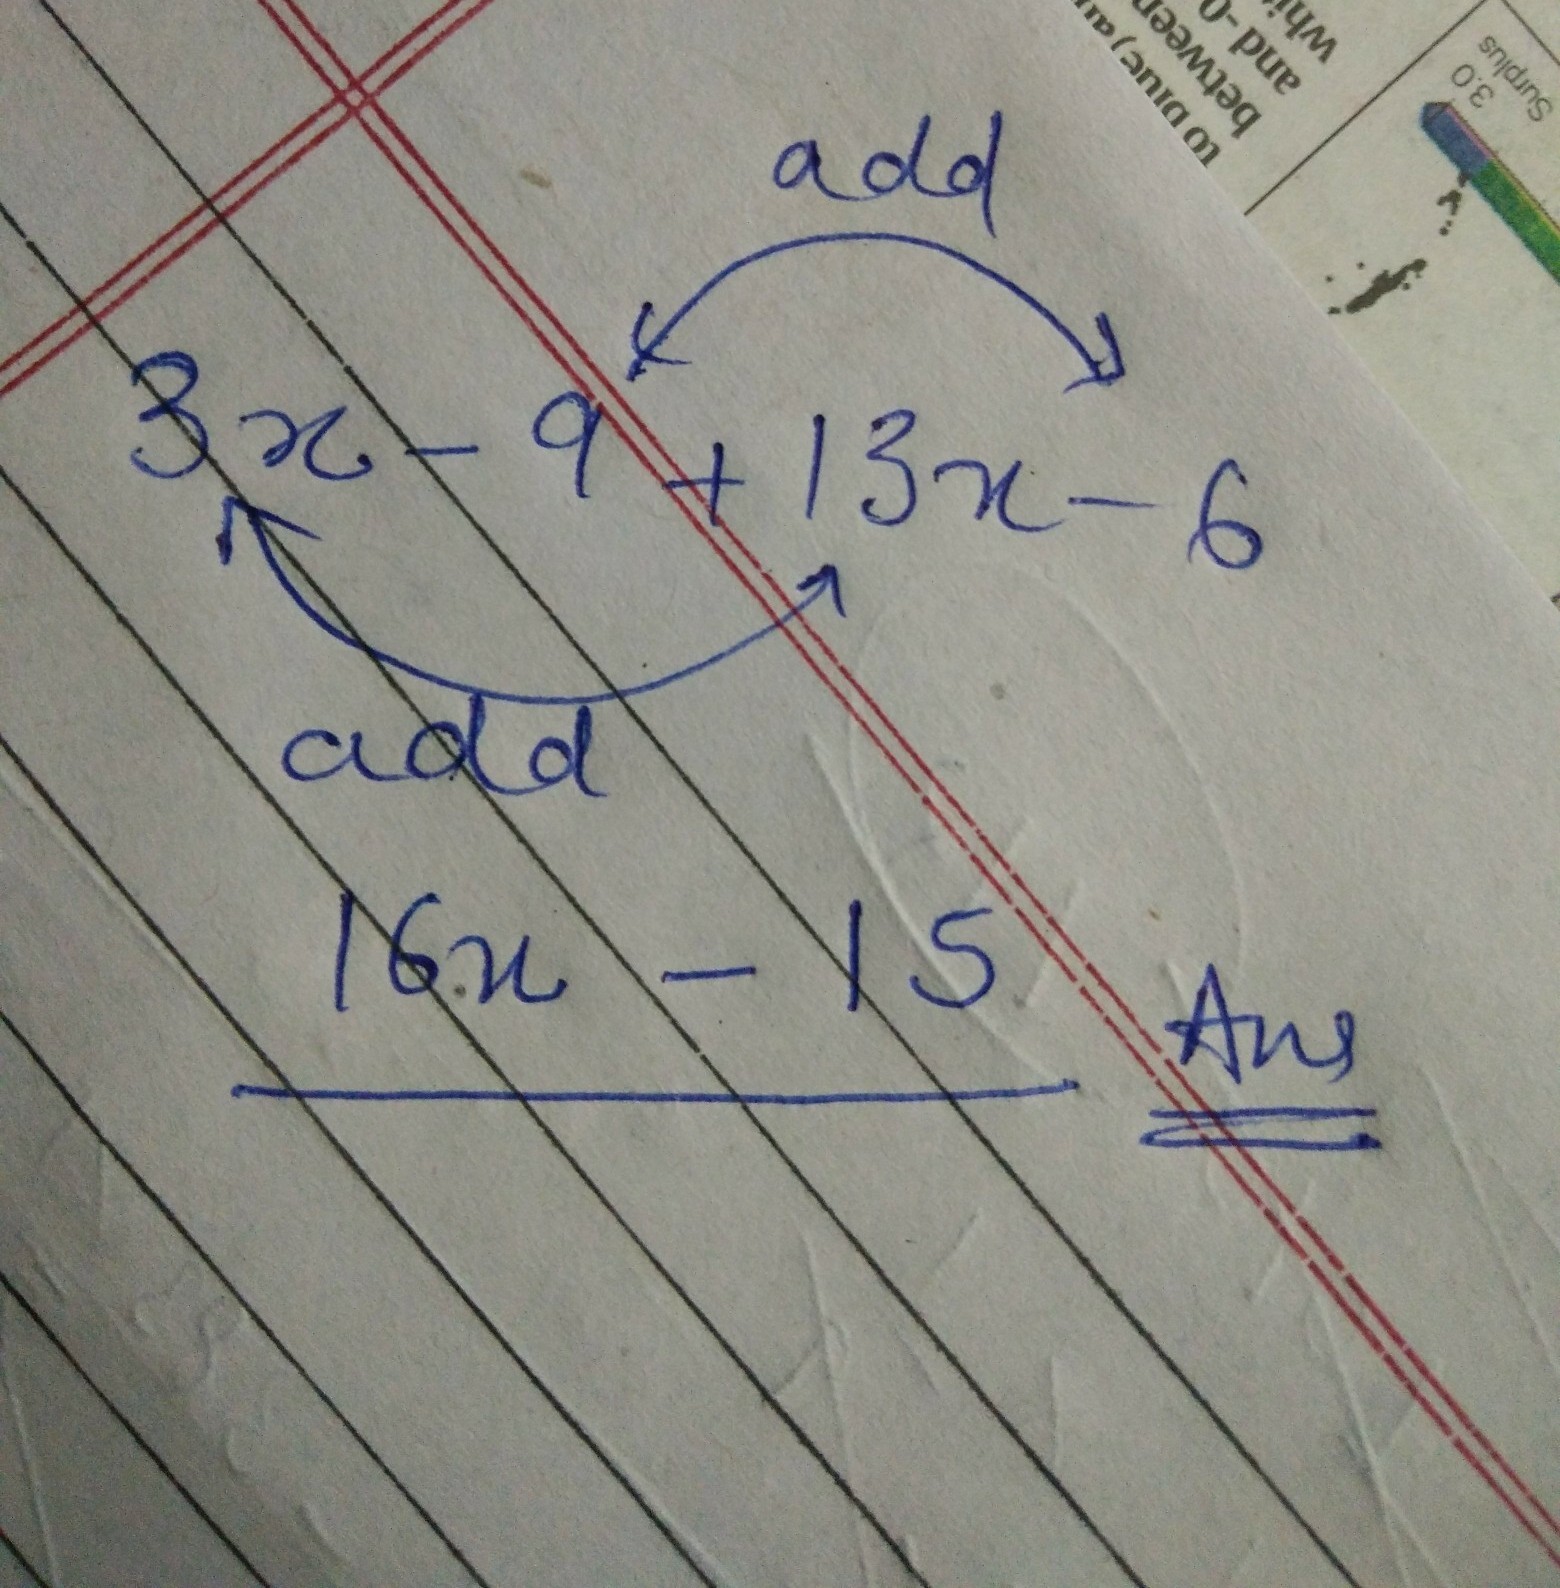 add
3x - 9 + 13x - 6
add
16x - 15
Ans
to blue) an
between
and -0
whi
3.0
Surplus